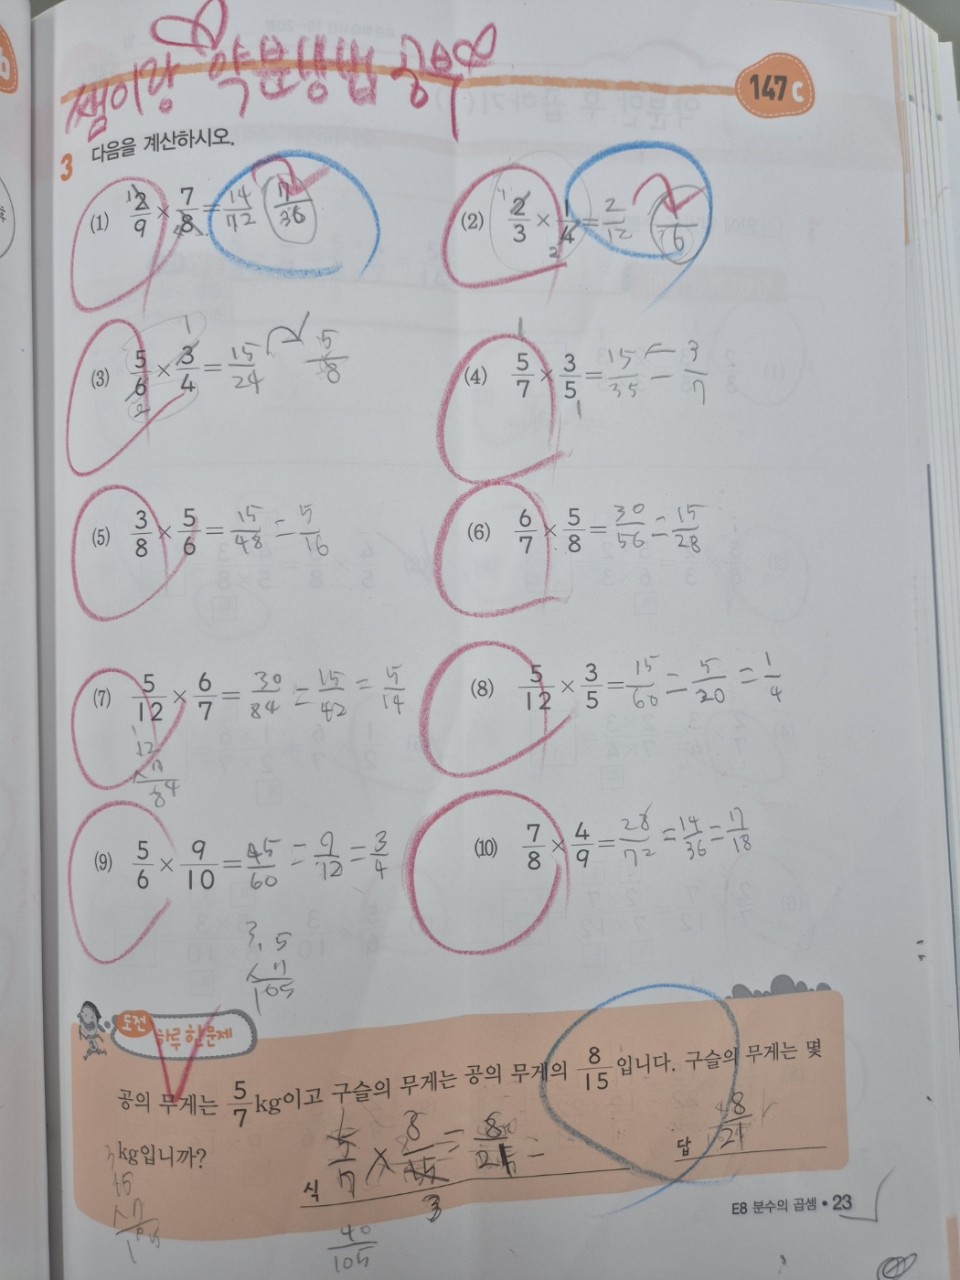 쌤이랑 약분방법 공부
147 c
3 다음을 계산하시오.
(1) 2/9 × 7/8 = 14/72 7/36
(2) 2/3 × 1/4 = 2/12 1/6
(3) 5/6 × 3/4 = 15/24 5/8
(4) 5/7 × 3/5 = 15/35 = 3/7
(5) 3/8 × 5/6 = 15/48 = 5/16
(6) 6/7 × 5/8 = 30/56 = 15/28
(7) 5/12 × 6/7 = 30/84 = 15/42 = 5/14
(8) 5/12 × 3/5 = 15/60 = 5/20 = 1/4
12
×7
84
(9) 5/6 × 9/10 = 45/60 = 9/12 = 3/4
(10) 7/8 × 4/9 = 28/72 = 14/36 = 7/18
3.5
×7
105
도전 하루 한 문제
공의 무게는 5/7 kg이고 구슬의 무게는 공의 무게의 8/15 입니다. 구슬의 무게는 몇
kg입니까?
식 5/7 × 8/15 = 8/21 =
답 8/21
40/105
E8 분수의 곱셈 • 23